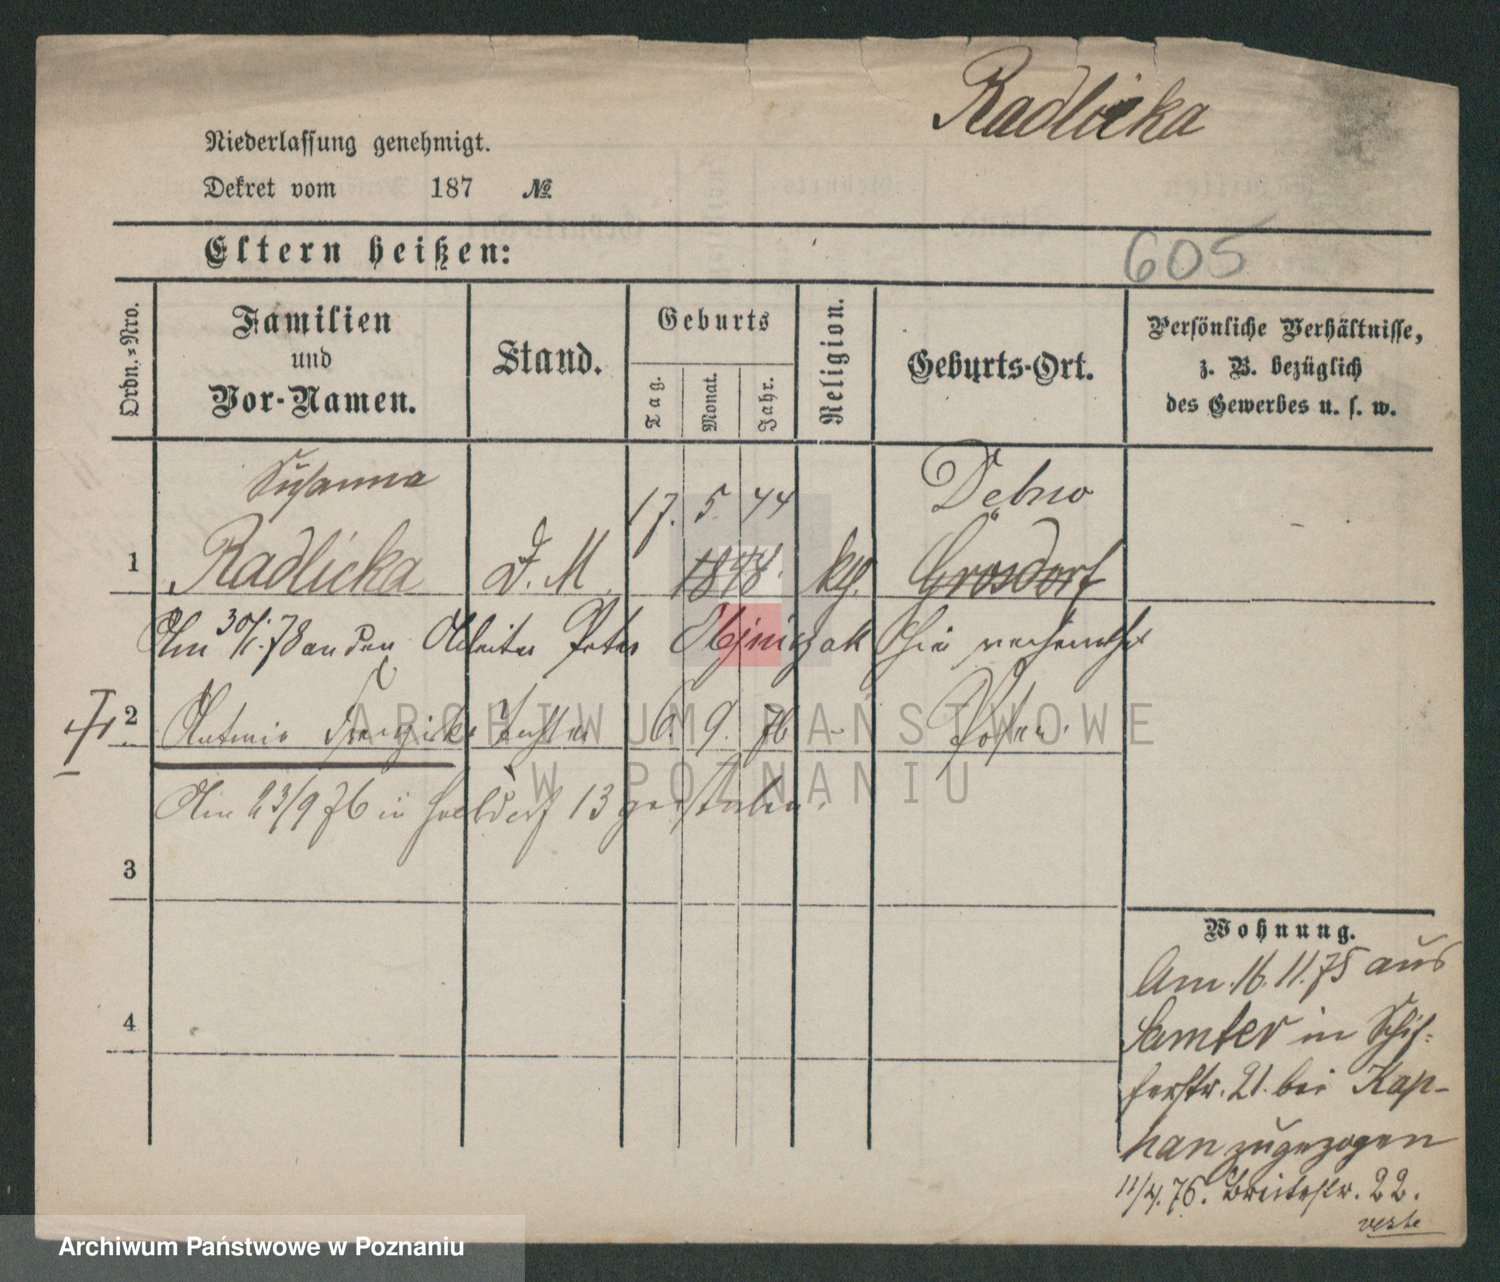 Radlicka
Niederlassung genehmigt.
Dekret vom 187 №
Eltern heißen:
605
Ordn.-Nro.
Familien
und
Vor-Namen.
Stand.
Geburts
Tag.
Monat.
Jahr.
Religion.
Geburts-Ort.
Persönliche Verhältnisse,
z. B. bezüglich
des Gewerbes u. s. w.
Susanna 17. 5 44 Debno
1 Radlicka D. M. 1848. kth. Grosdorf
Am 30/1. 78 an den Arbeiter Peter hie verheirathet
2 Antonie Tochter 6. 9. 76 - Posen.
Am 23/9 76 in 13 gestorben.
3
4
Wohnung.
Am 16. 11. 75 aus
Samter in Schif-
ferstr. 21. bei Kap-
han zugezogen
11/4. 76. Breitestr. 22.
ARCHIWUM PAŃSTWOWE
W POZNANIU
Archiwum Państwowe w Poznaniu